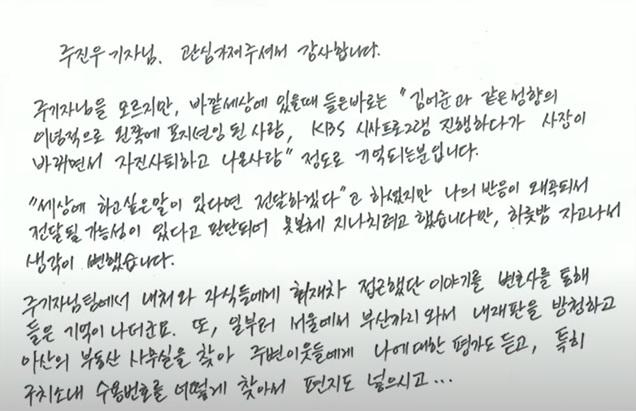 주진우 기자님. 관심가져주셔서 감사합니다.
주기자님을 모르지만, 바깥세상에 있을때 들은바로는 "김어준과 같은성향의
이념적으로 왼쪽에 포지션잉 된 사람, KBS 시사프로그램 진행하다가 사장이
바뀌면서 자진사퇴하고 나온사람" 정도로 기억되는분입니다.
"세상에 하고싶은말이 있다면 전달하겠다"고 하셨지만 나의 반응이 왜곡되서
전달될 가능성이 있다고 판단되어 못본체 지나치려고 했습니다만, 하룻밤 자고나서
생각이 변했습니다.
주기자님팀에서 내처와 자식들에게 취재차 접근했단 이야기를 변호사를 통해
들은 기억이 나더군요. 또, 일부러 서울에서 부산까지 와서 내재판을 방청하고
아산의 부동산 사무실을 찾아 주변이웃들에게 나에대한 평가도 듣고, 특히
구치소내 수용번호를 어떻게 찾아서 편지도 넣으시고...